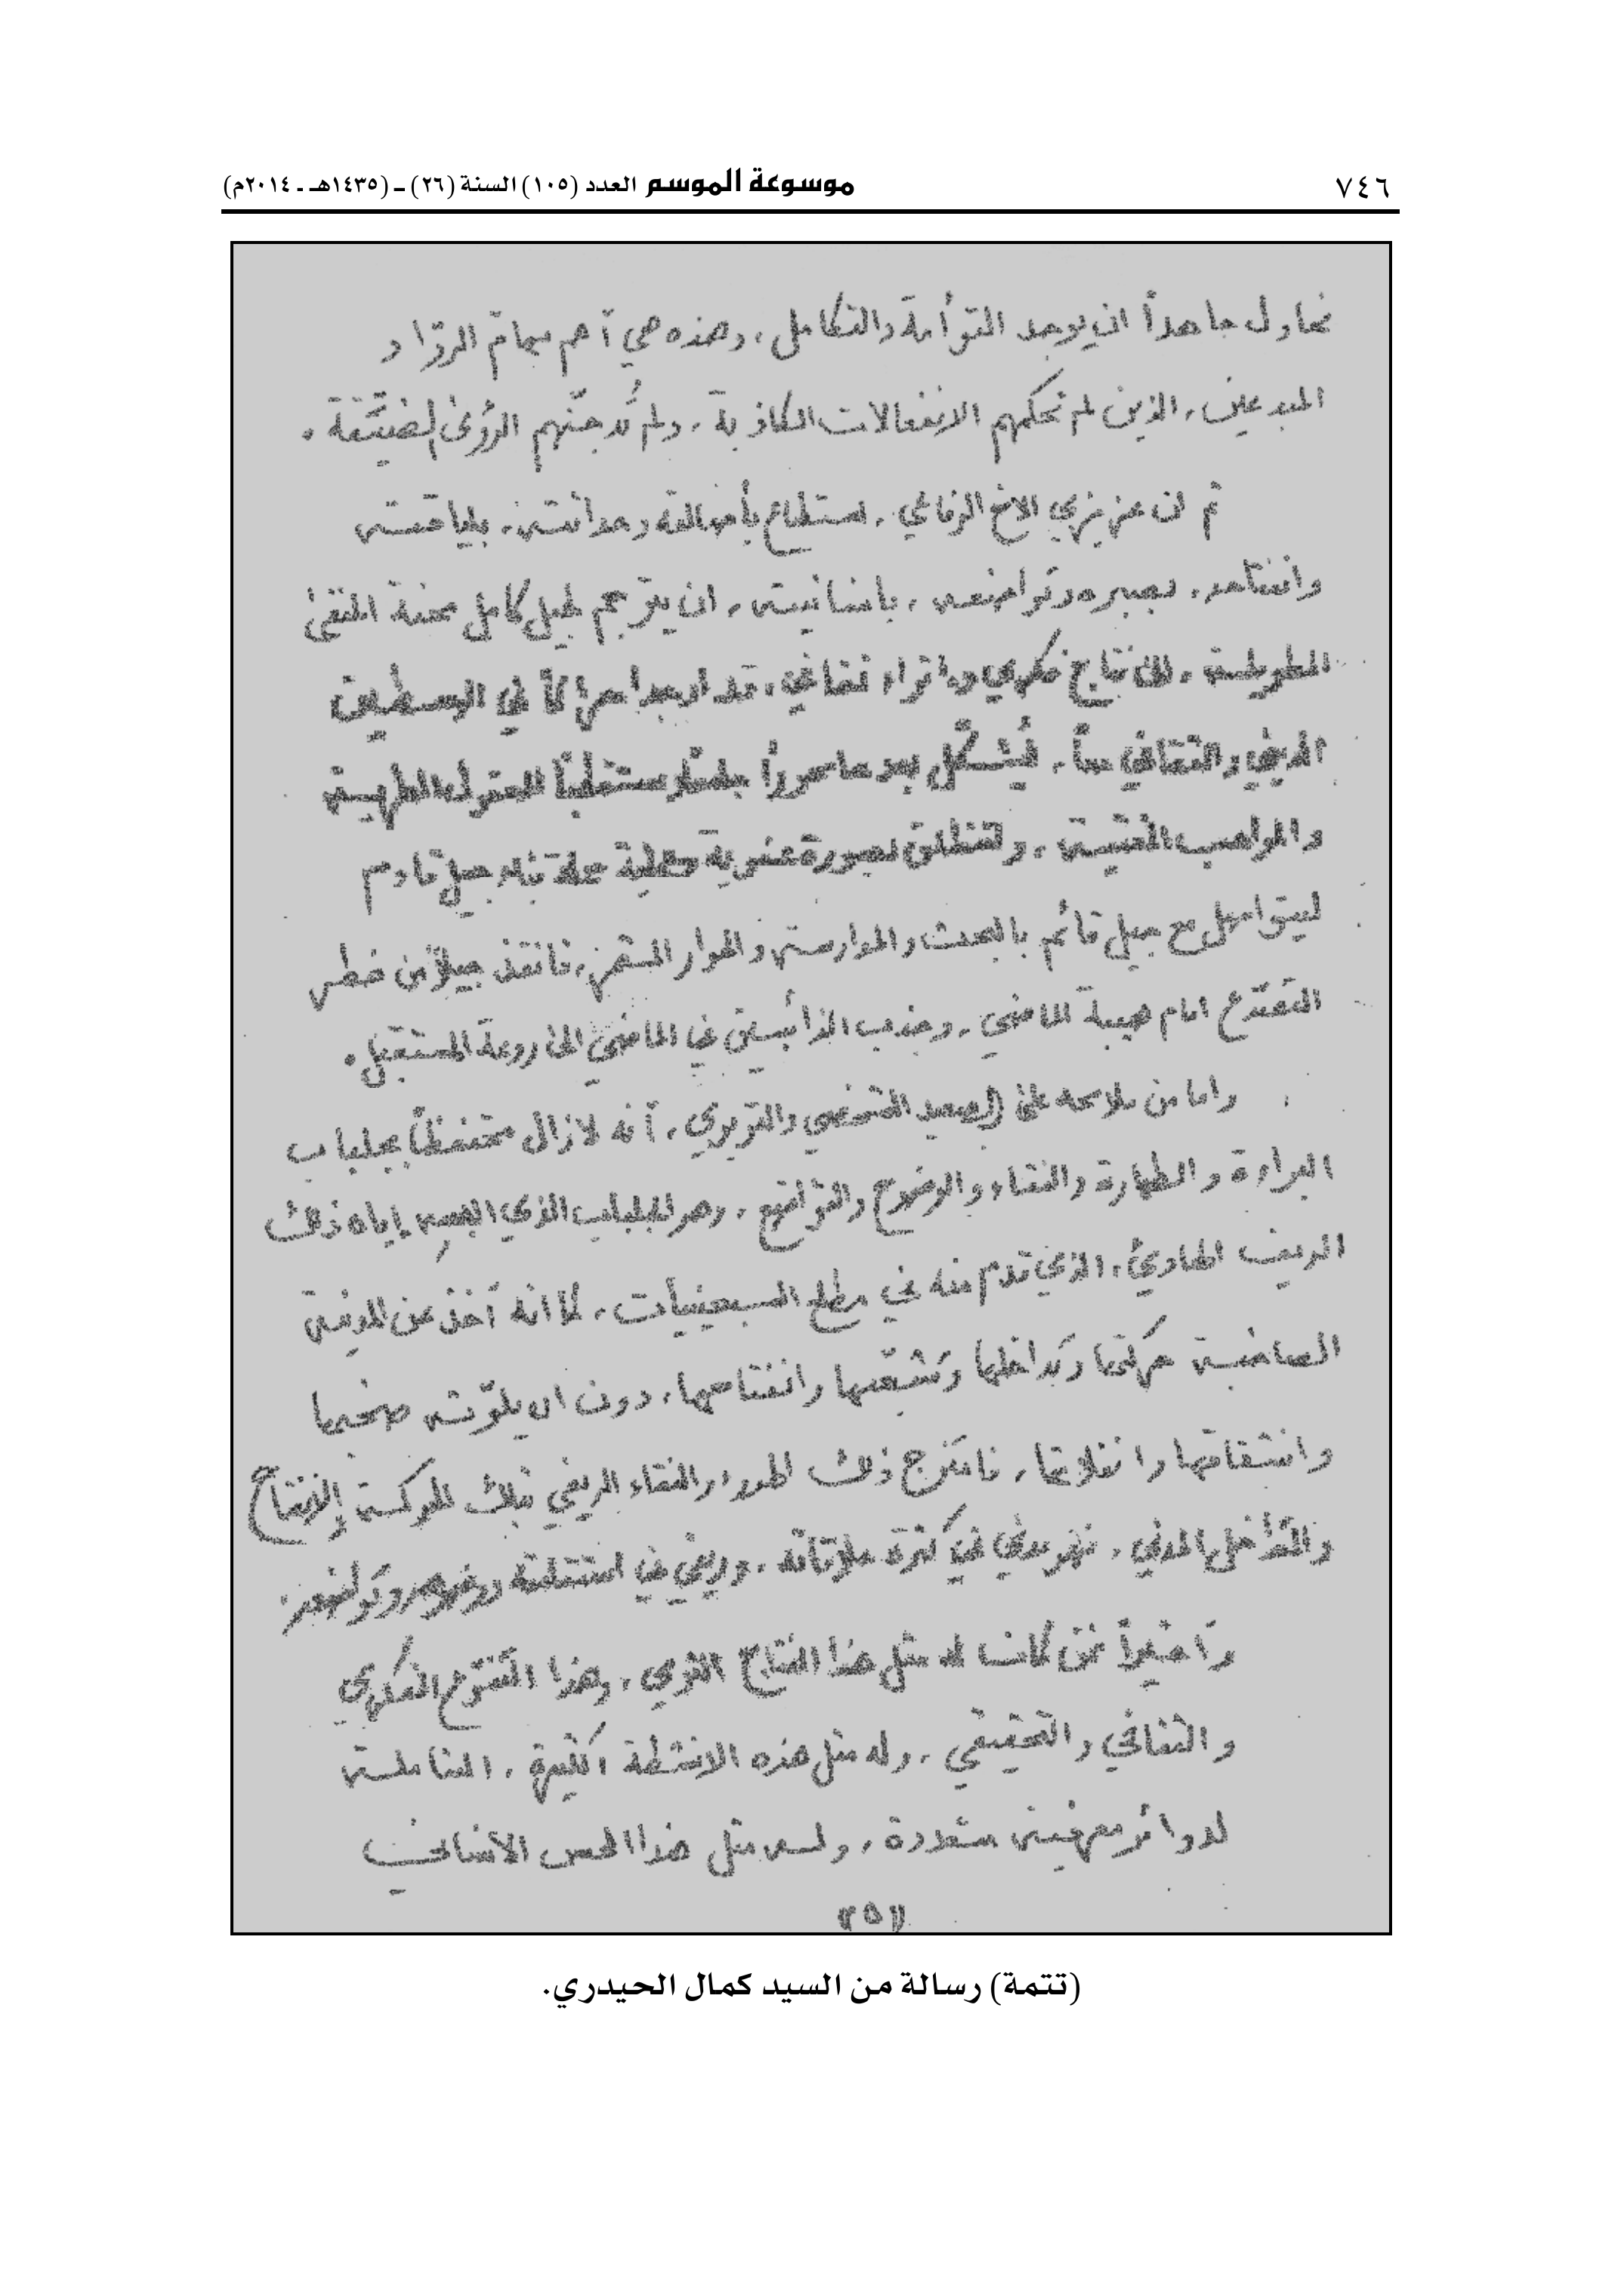 ٧٤٦
موسوعة الموسم العدد (١٠٥) السنة (٢٦) ـ (١٤٣٥هـ ـ ٢٠١٤م)
نحاول جاهداً ان يوجد التوأمة والتكامل، وهذه هي أهم سمات الروّاد
المبدعين، الذين لم تحكمهم الانفعالات الكاذبة، ولم تُدجّنهم الرؤى الضيّقة.
ثم ان عزيزي الاخ الرفاعي، استطاع بأصالته وحداثته، بلياقته
وانفتاحه، بصبره وتواضعه، بانسانيته، ان يترجم لجيل كامل محنة المنفى
الطويلة، الى نتاج فكري واثراء ثقافي، قد اوجد حراكاً في الوسطين
الديني والثقافي معاً، ليُشكّل بعدها محوراً للعقول الطرية
والمواهب الفتية، ولتنطلق بصورة عفوية وعملية جيل قادم
ليتواصل مع جيل قائم بالبحث والمدارسة والحوار المتزن، فانقذ جيلاً من خطر
التصدّع امام هيبة الماضي، وجذب الذائبين في الماضي الى روعة المستقبل.
واما من ملامحه على الصعيد الشخصي والتربوي، أنه لازال محتفظاً بجلباب
البراءة والطهارة والنقاء والوضوح والتواضع، وهو الجلباب الذي البسه إياه ذلك
الريف الهادئ، الذي قدم منه في مطلع السبعينيات، كما انه أخذ من المدينة
الصاخبة حركتها وتداخلها وتشعّبها وانفتاحها، دون ان يلوّثه صخبها
وانشقاقها وانفلاتها، فامتزج ذلك الهدوء والنقاء الريفي بتلك الحركة الانفتاح
والتداخل المدني، فهو مدني في كثرة علاقاته، وريفي في وتواضعه.
وأخيراً فمن كان له مثل هذا النتاج الثري، وهذا التنوّع الفكري
والثقافي والتحقيقي، وله مثل هذه الانشطة الكثيرة، الشاملة
لدوائر معرفية متعددة، وله مثل هذا الحس الانساني
((٢٥))
(تتمة) رسالة من السيد كمال الحيدري.